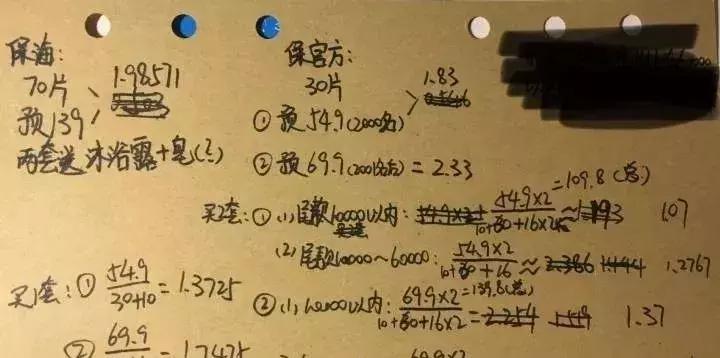 保海:
70片 1.98571
预139
两套送沐浴露+皂(?)
买1套: ① 54.9/30+10 = 1.3725
② 69.9 = 1.7475
保官方:
30片 1.83
① 预54.9(2000名)
② 预69.9(2001名后) = 2.33
买2套: ① (1) 尾款10000以内: 54.9×2/10+60+16×2 =109.8(总) ≈ 1.07
(2) 尾款10000~60000: 54.9×2/10+60+16 ≈ 1.2767
② (1) 10000以内: 69.9×2/10+60+16×2 =139.8(总) = 1.37
69.9×2